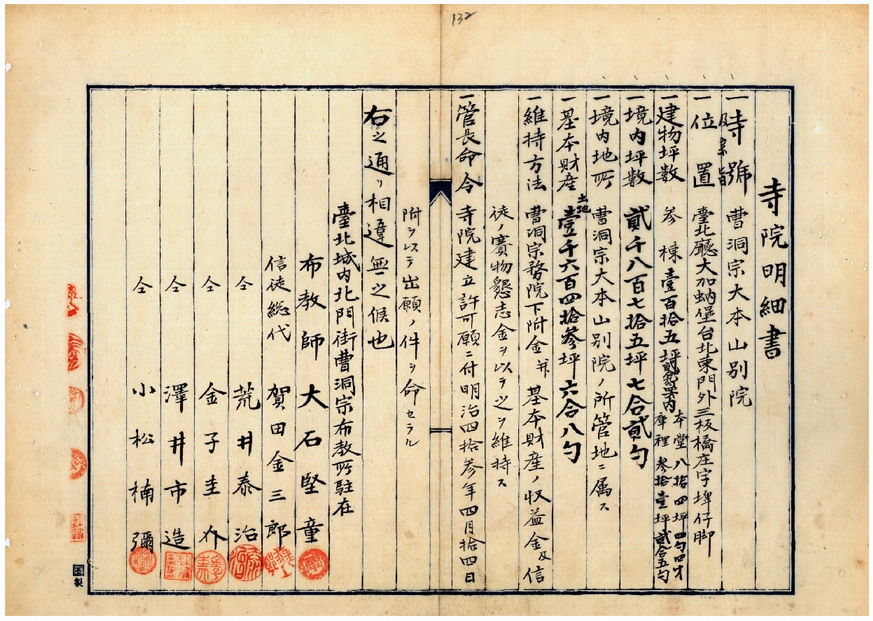 132
寺院明細書
一寺號 曹洞宗大本山別院
及宗旨
一位置 臺北廳大加蚋堡台北東門外三板橋庄字埤仔脚
一建物坪數 参棟壹百拾五坪 内 本堂八拾四坪四勺四才
庫裡参拾壹坪貳合五勺
一境內坪數 貳千八百七拾五坪七合貳勺
一境內地所 曹洞宗大本山別院ノ所管地ニ属ス
一基本財產 土地壹千六百四拾参坪六合八勺
一維持方法 曹洞宗務院下附金并基本財産ノ收益金及信
徒ノ賽物懇志金ヲ以テ之ヲ維持ス
一管長命令 寺院建立許可願ニ付明治四拾参年四月拾四日
附ヲ以テ出願ノ件ヲ命セラル
右之通リ相違無之候也
臺北城内北門街曹洞宗布教所駐在
布教師 大石堅童
信徒総代 賀田金三郎
仝 荒井泰治
仝 金子圭介
仝 澤井市造
仝 小松楠彌